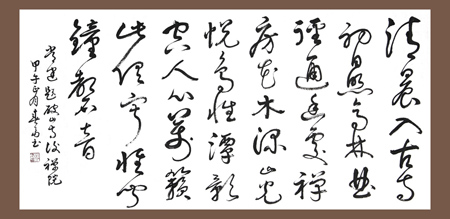 清晨入古寺
初日照高林曲
徑通幽處禪
房花木深山光
悦鳥性潭影
空人心萬籟
此俱寂惟聞
鐘磬音
常建題破山寺後禪院
甲午正月